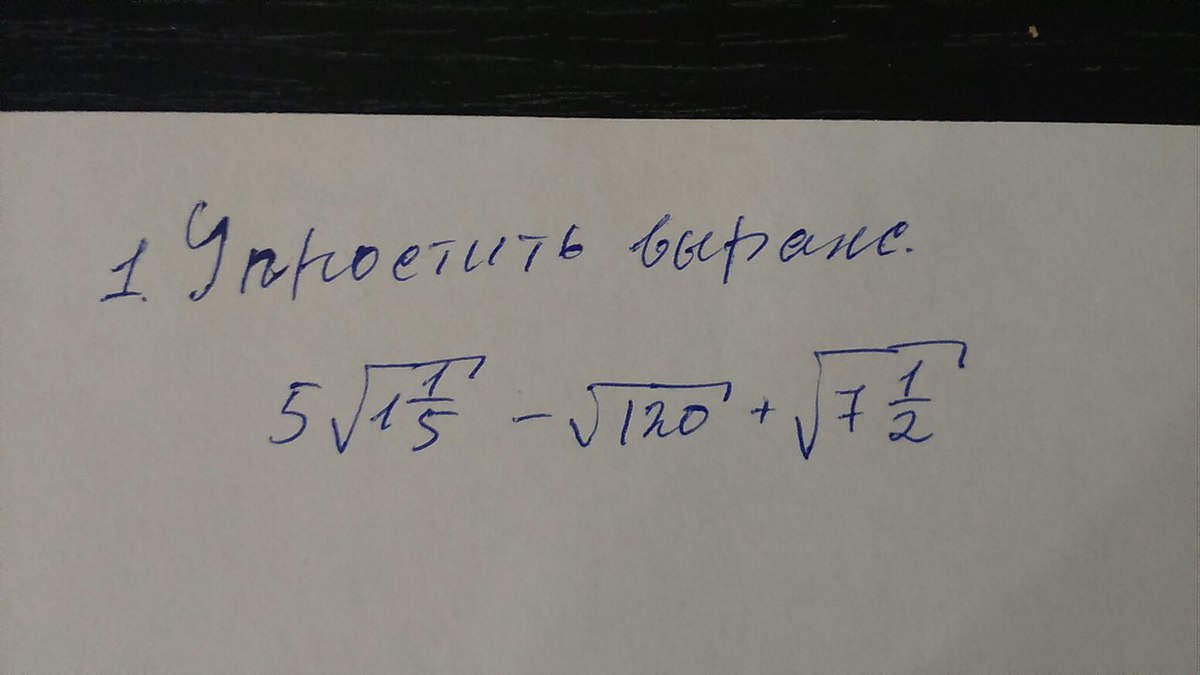 1. Упростить выраж.
5√(1 1/5) - √120 + √(7 1/2)